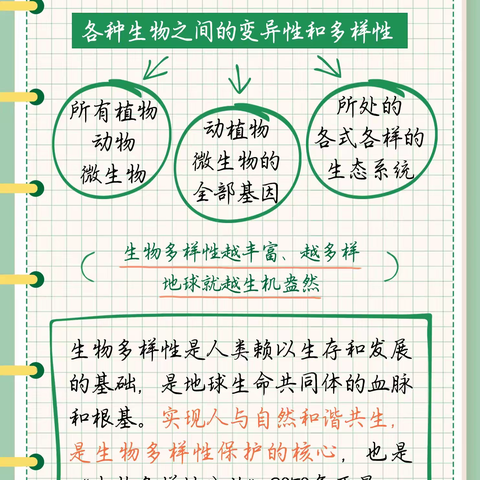 各种生物之间的变异性和多样性
所有植物
动物
微生物
动植物
微生物的
全部基因
所处的
各式各样的
生态系统
生物多样性越丰富、越多样
地球就越生机盎然
生物多样性是人类赖以生存和发展
的基础，是地球生命共同体的血脉
和根基。实现人与自然和谐共生，
是生物多样性保护的核心，也是